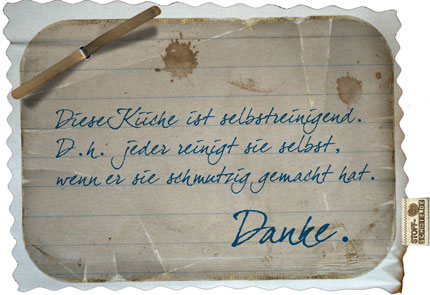 Diese Küche ist selbstreinigend.
D.h. jeder reinigt sie selbst,
wenn er sie schmutzig gemacht hat.
Danke.
STOFF-
SCHMIERDE